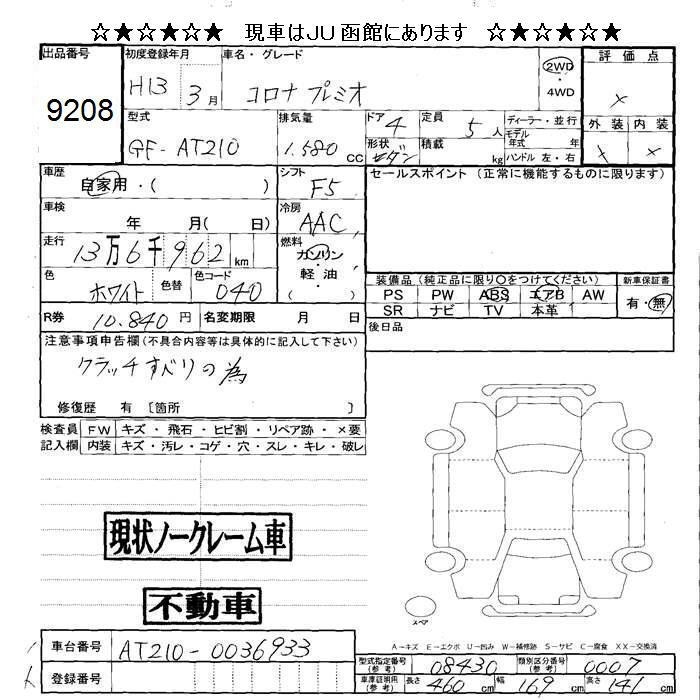 ☆★☆★☆★ 現車はJU函館にあります ☆★☆★☆★
出品番号 初度登録年月 車名・グレード 2WD 評価点
9208 H13 3月 コロナ プレミオ 4WD ×
型式 排気量 ドア 4 定員 5人 ディーラー・並行 外装 内装
GF-AT210 1.580 CC 形状 セダン 積載 kg モデル年式 年 ハンドル 左・右 × ×
車歴 シフト セールスポイント(正常に機能するものに限ります)
自家用・( ) F5
車検 冷房
年 月( 日) AAC
走行 燃料
13万6千962km ガソリン
色 色替 色コード ・軽油・
ホワイト 040 ( )
装備品(純正品に限り○をつけてください) 新車保証書
PS PW ABS エアB AW 有・無
SR ナビ TV 本革
R券 10.840円 名変期限 月 日
後日品
注意事項申告欄(不具合内容等は具体的に記入して下さい)
クラッチすべりの為
修復歴 有〔箇所 〕
検査員 FW キズ・飛石・ヒビ割・リペア跡・×要
記入欄 内装 キズ・汚レ・コゲ・穴・スレ・キレ・破レ
現状ノークレーム車
不動車
スペア
A－キズ E－エクボ U－凹み W－補修跡 S－サビ C－腐食 XX－交換済
車台番号 AT210-0036933
登録番号
型式指定番号(参考) 08430 類別区分番号(参考) 0007
車庫証明用(参考) 長さ 460cm 幅 169cm 高さ 141cm